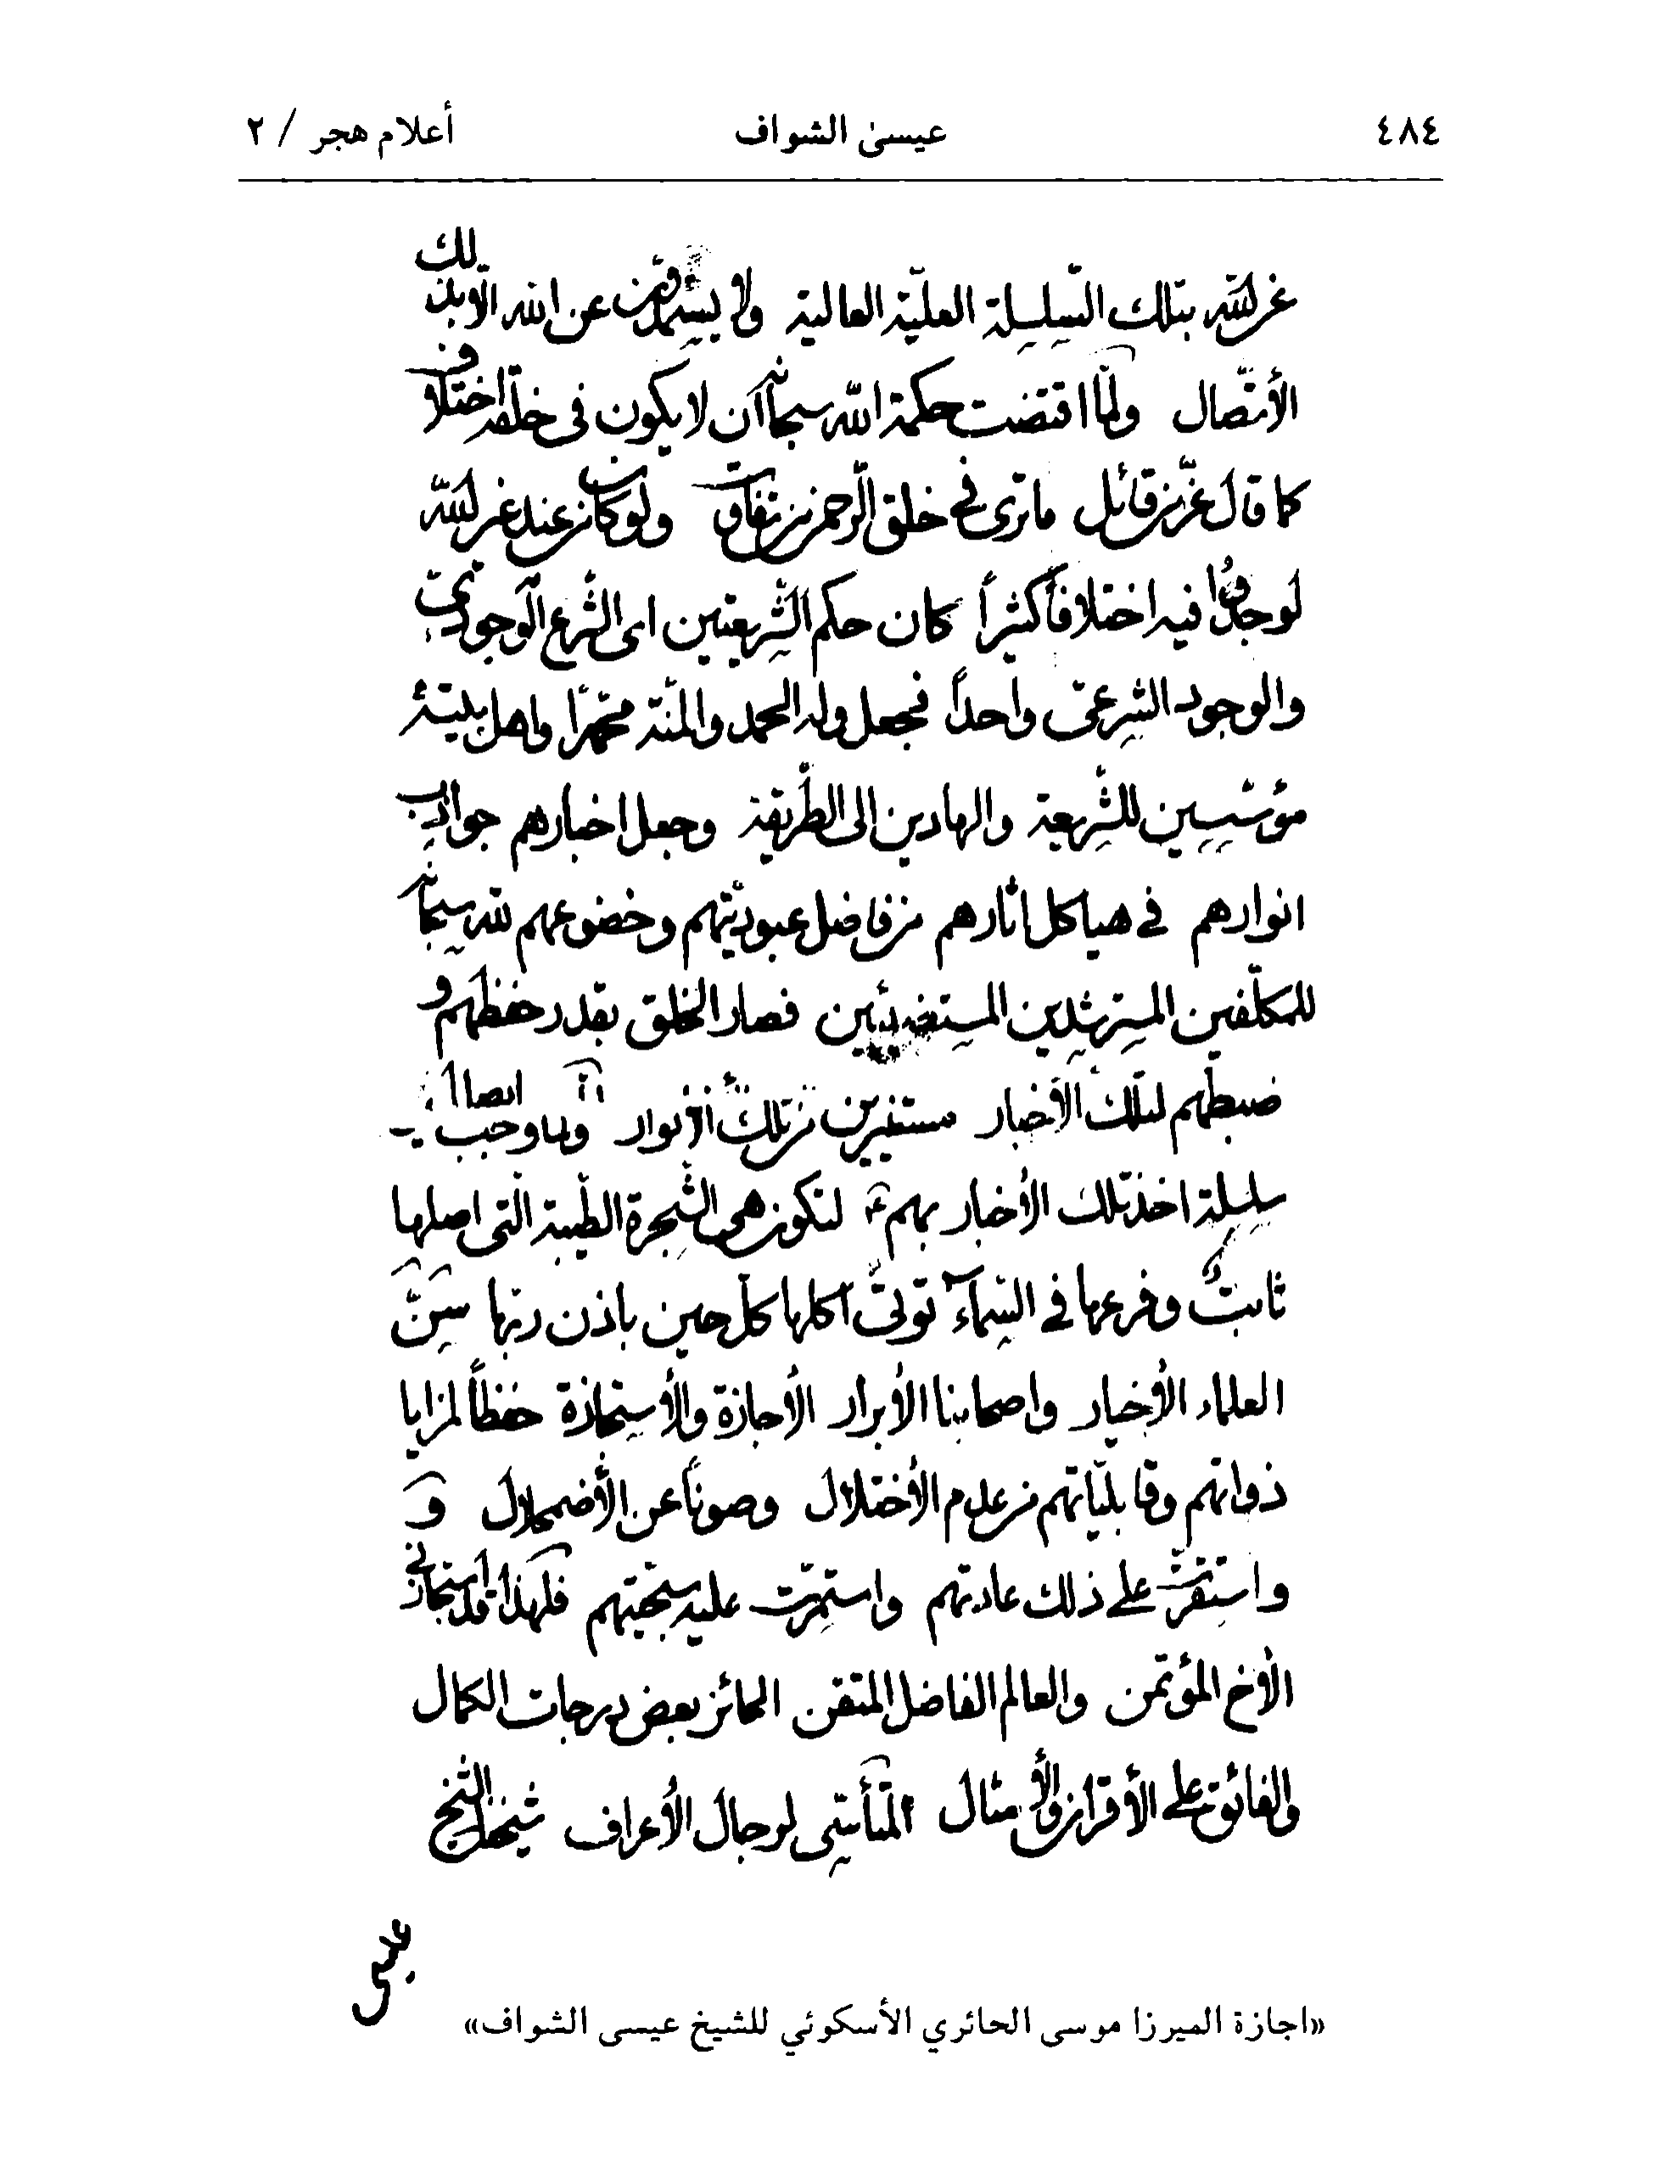 ٤٨٤ عيسىٰ الشواف أعلام هجر / ٢
غير الله بتلك السلسلة العليّة العالية ولا يستمدون عن الله الّا بذلك
الأتّصال ولمّا اقتضت حكمة الله سبحانه ان لا يكون فى خلقه اختلاف
كما قال عزّ من قائل ما ترى فى خلق الرّحمن من تفاوت ولو كان من عند غير الله
لوجدوا فيه اختلافاً كثيراً كان حكم الشّريعتين اى الشّرع الوجودى
والوجود الشرعىّ واحداً فجعل وله الحمد والمنّة محمّداً واهل بيته
مؤسّسين للشّريعة والهادين الى الطّريقة وجعل اخبارهم جواذب
انوارهم فى هياكل اثارهم من فاضل عبوديّتهم وخضوعهم لله سبحانه
للمكلّفين المسترشدين المستضيئين فصار الخلق بقدر حفظهم و
ضبطهم لتلك الأخبار مستنيرين من تلك الأنوار ولما وجب اتصال
سلسلة اخذ تلك الأخبار بهم ع لتكون هى الشّجرة الطّيبة الّتى اصلها
ثابتٌ وفرعها فى السّماء تؤتى اكلها كلّ حين باذن ربّها سَنَّ
العلماء الأخيار واصحابنا الأبرار الأجازة والأستجازة حفظاً لمزايا
ذواتهم وقابليّاتهم من عدم الأختلال وصوناً عن الأضمحلال و
واستقرّت على ذلك عادتهم واستمرّت عليه سجيّتهم فلهذا قد استجازنى
الأخ المؤتمن والعالم الفاضل المتقن الحائز بعض درجات الكمال
والفائق على الأقران والأمثال المتأسّى لرجال الأعراف شيخنا الشيخ
عيسى
«اجازة الميرزا موسى الحائري الأسكوئي للشيخ عيسى الشواف»